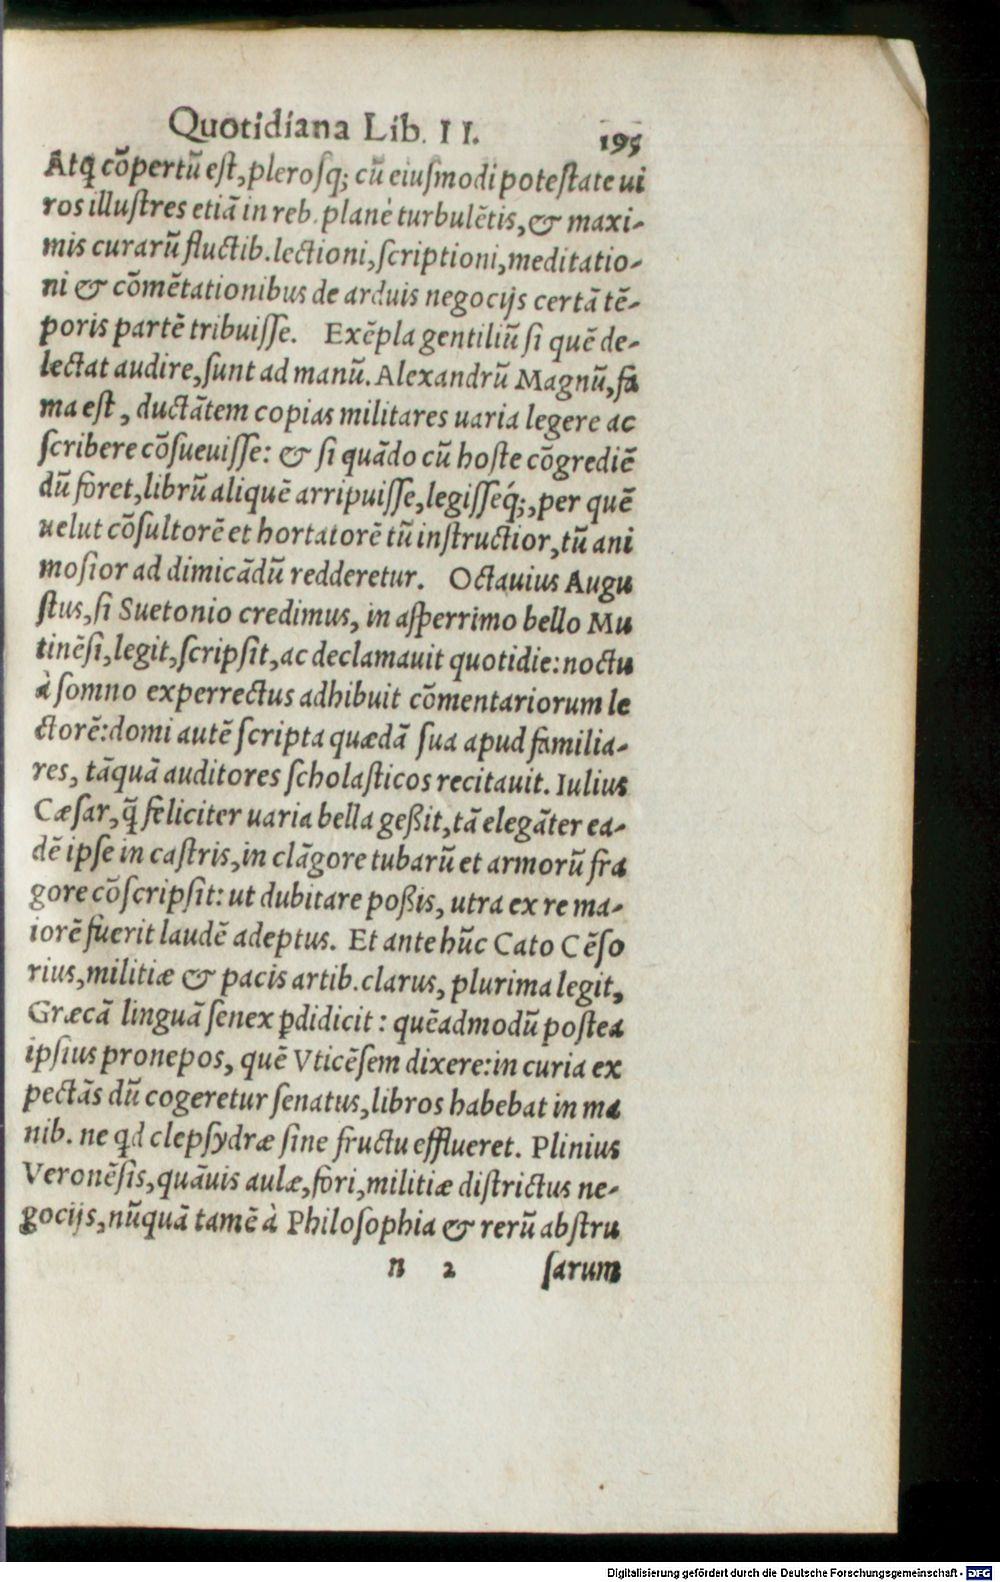 Quotidiana Lib. II. 195
Atq̃ cõpertũ eſt, pleroſq; cũ eiuſmodi poteſtate ui
ros illuſtres etiã in reb. planè turbulẽtis, & maxi-
mis curarũ fluctib. lectioni, ſcriptioni, meditatio-
ni & cõmẽtationibus de arduis negocijs certã tẽ-
poris partẽ tribuiſſe. Exẽpla gentiliũ ſi quẽ de-
lectat audire, ſunt ad manũ. Alexandrũ Magnũ, fa
ma eſt, ductãtem copias militares uaria legere ac
ſcribere cõſueuiſſe: & ſi quãdo cũ hoſte cõgrediẽ
dũ foret, librũ aliquẽ arripuiſſe, legiſſeq́;, per quẽ
uelut cõſultorẽ et hortatorẽ tũ inſtructior, tũ ani
moſior ad dimicãdũ redderetur. Octauius Augu
ſtus, ſi Suetonio credimus, in aſperrimo bello Mu
tinẽſi, legit, ſcripſit, ac declamauit quotidie: noctu
à ſomno experrectus adhibuit cõmentariorum le
ctorẽ: domi autẽ ſcripta quædã ſua apud familia-
res, tãquã auditores ſcholaſticos recitauit. Iulius
Cæſar, q̃ feliciter uaria bella geßit, tã elegãter ea-
dẽ ipſe in caſtris, in clãgore tubarũ et armorũ fra
gore cõſcripſit: ut dubitare poßis, utra ex re ma-
iorẽ fuerit laudẽ adeptus. Et ante hũc Cato Cẽſo
rius, militiæ & pacis artib. clarus, plurima legit,
Græcã linguã ſenex ꝑdidicit: quẽadmodũ poſtea
ipſius pronepos, quẽ Vticẽſem dixere: in curia ex
pectãs dũ cogeretur ſenatus, libros habebat in ma
nib. ne qd clepſydræ ſine fructu efflueret. Plinius
Veronẽſis, quãuis aulæ, fori, militiæ diſtrictus ne-
gocijs, nũquã tamẽ à Philoſophia & rerũ abſtru
n 2 ſarum
Digitalisierung gefördert durch die Deutsche Forschungsgemeinschaft - DFG